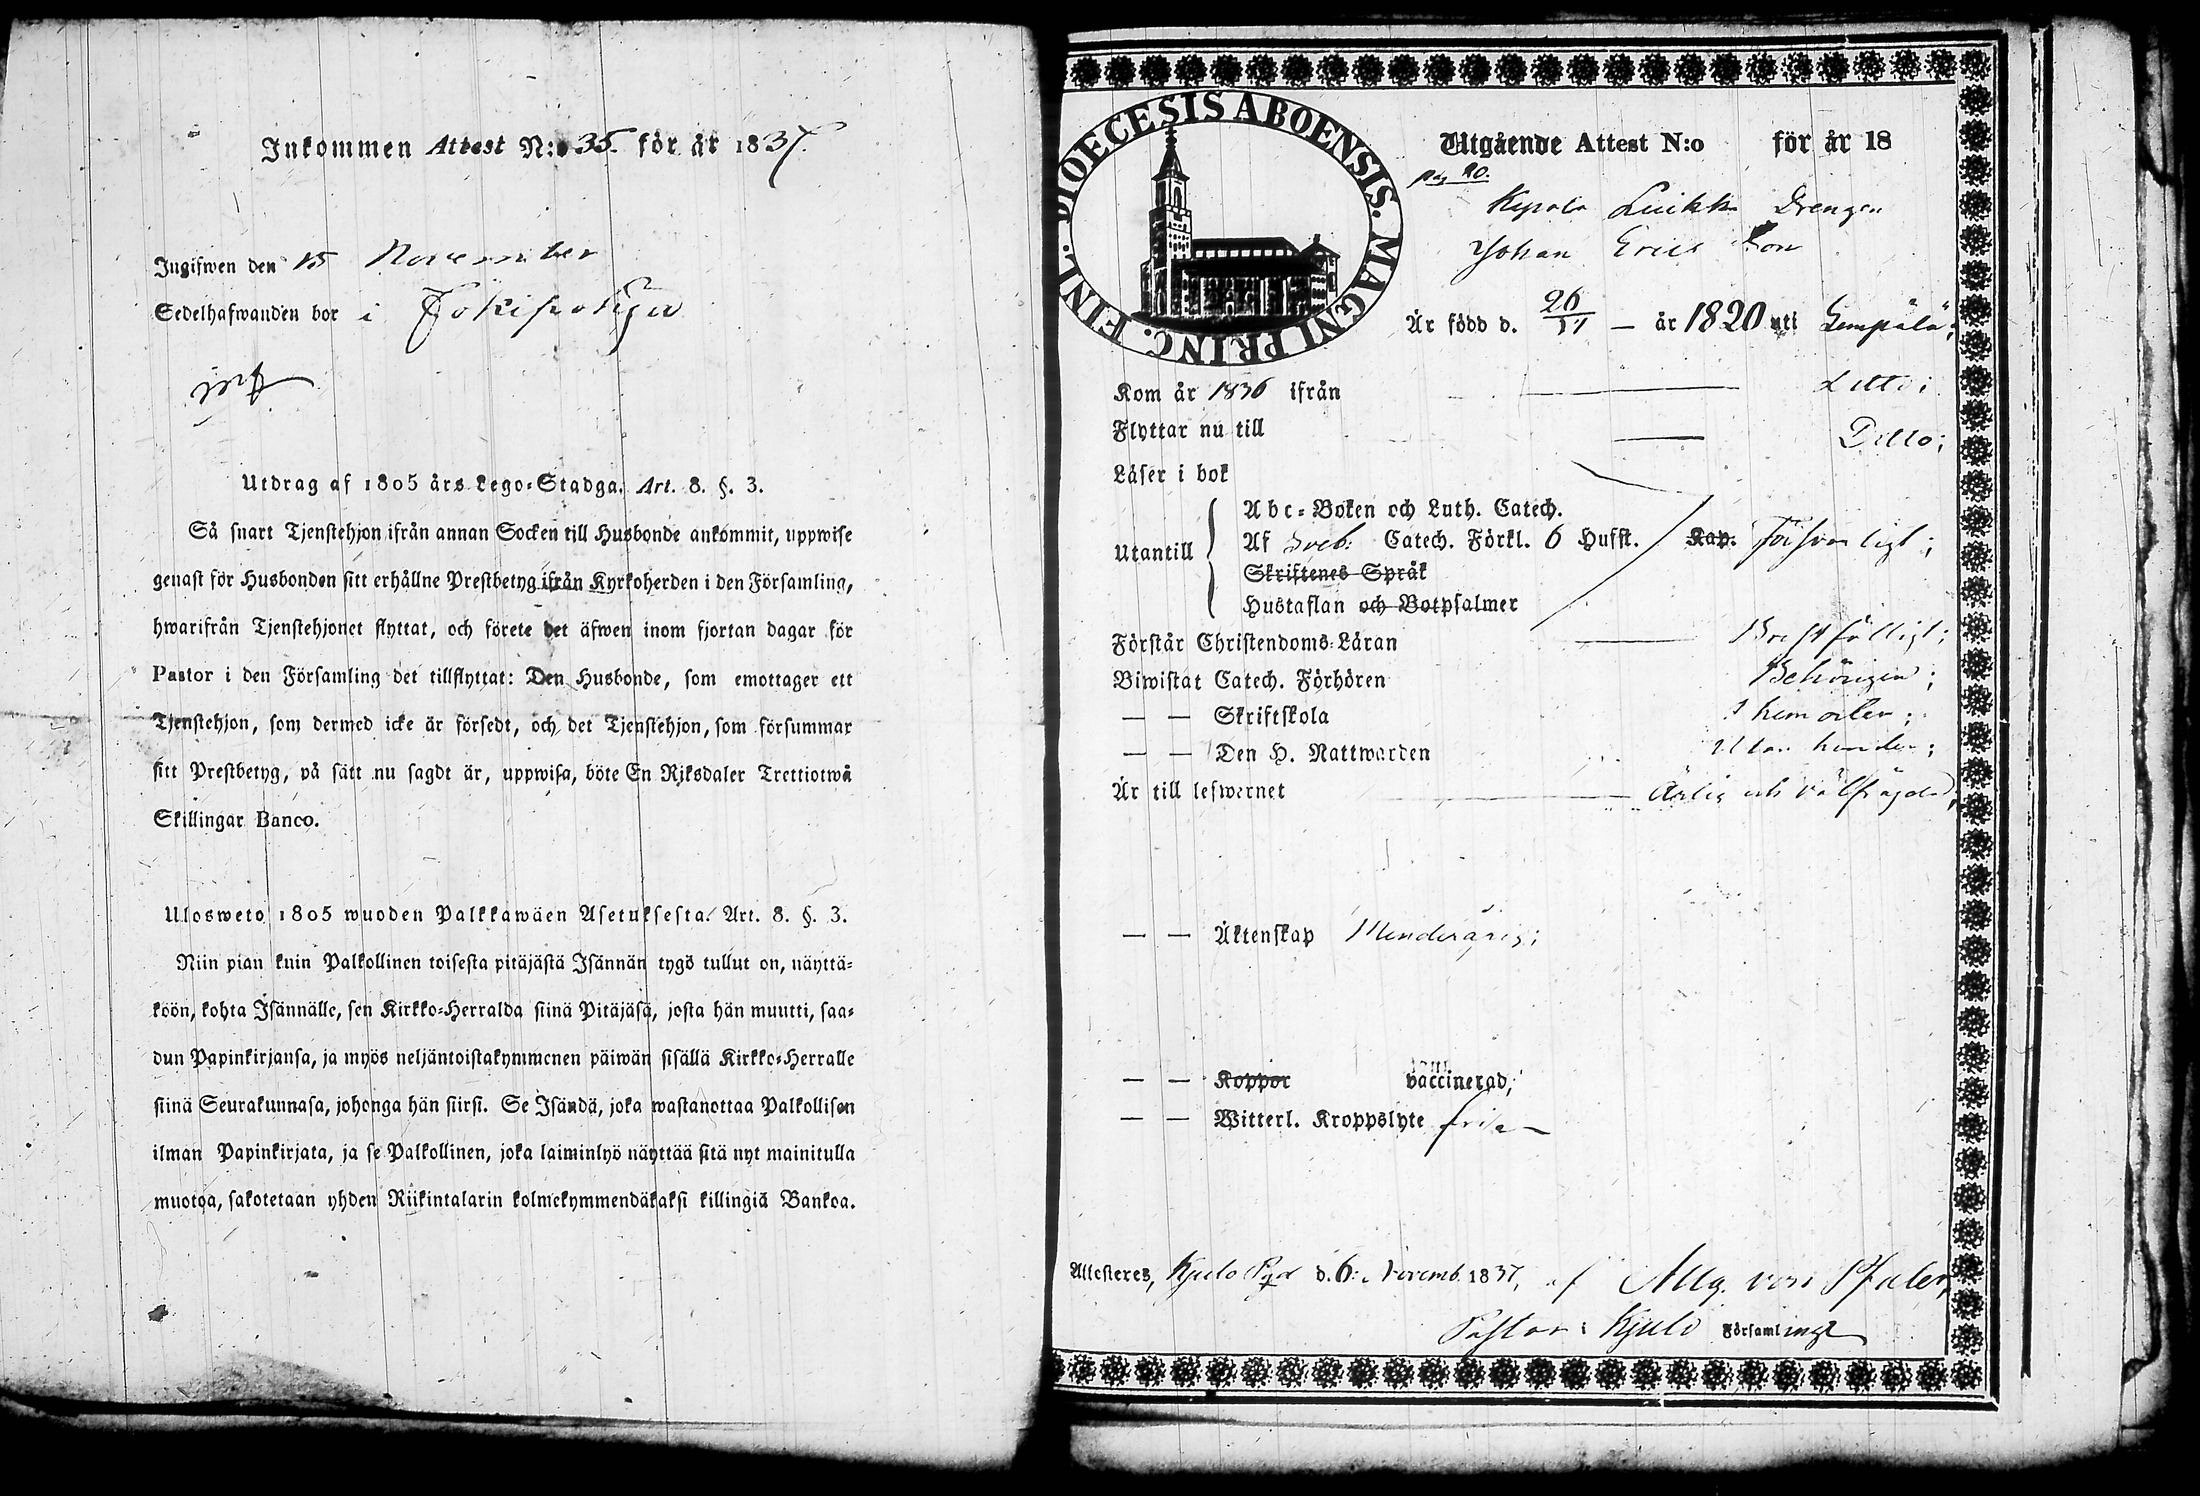 Inkommen Attest N:o 35. för år 1837.
Ingifwen den 15 November
Sedelhafwanden bor i Jokipohja
Utdrag af 1805 års Lego-Stadga. Art. 8. §. 3.
Så snart Tjenstehjon ifrån annan Socken till Husbonde ankommit, uppwise
genast för Husbonden sitt erhållne Prestbetyg ifrån Kyrkoherden i den Församling,
hwarifrån Tjenstehjonet flyttat, och förete det äfwen inom fjortan dagar för
Pastor i den Församling det tillflyttat: Den Husbonde, som emottager ett
Tjenstehjon, som dermed icke är försedt, och det Tjenstehjon, som försummar
sitt Prestbetyg, på sätt nu sagdt är, uppwisa, böte En Riksdaler Trettiotwå
Skillingar Banco.
Ulosweto 1805 wuoden Palkkawäen Asetuksesta. Art. 8. §. 3.
Niin pian kuin Palkollinen toisesta pitäjästä Isännän tygö tullut on, näyttä-
köön, kohta Isännälle, sen Kirkko-Herralda siinä Pitäjäsä, josta hän muutti, saa-
dun Papinkirjansa, ja myös neljäntoistakymmenen päiwän sisällä Kirkko-Herralle
siinä Seurakunnasa, johonga hän siirsi. Se Isändä, joka wastanottaa Palkollisen
ilman Papinkirjata, ja se Palkollinen, joka laiminlyö näyttää sitä nyt mainitulla
muotoa, sakotetaan yhden Riikintalarin kolmekymmendäkaksi killingiä Bankoa.
DIOECESIS ABOENSIS. MAGNI PRINC. FINL.
Utgående Attest N:o för år 18
pag 20.
Kepola Luikka Drengen
Johan Ericsson
Är född d. 26/11 — år 1820 uti Lempälä;
Kom år 1836 ifrån — Ditto;
Flyttar nu till — Ditto;
Läser i bok
Abc-Boken och Luth. Catech.
Utantill Af Sveb: Catech. Förkl. 6 Hufst. Kap. Försvarligt;
Skriftenes Språk
Hustaflan och Botpsalmer
Förstår Christendoms-Läran —
Biwistat Catech. Förhören Behörigen;
— — Skriftskola
— — Den H. Nattwarden Utan hinder;
Är till lefwernet — Ärlig och välfrägdad;
— — Äktenskap Minderårig;
— — Koppor vaccinerad;
— — Witterl. Kroppslyte fri —
Attesteres, Kjulo Pgd d. 6: Novemb. 1837, af Aug. von Pfaler,
Pastor i Kjulo Församling